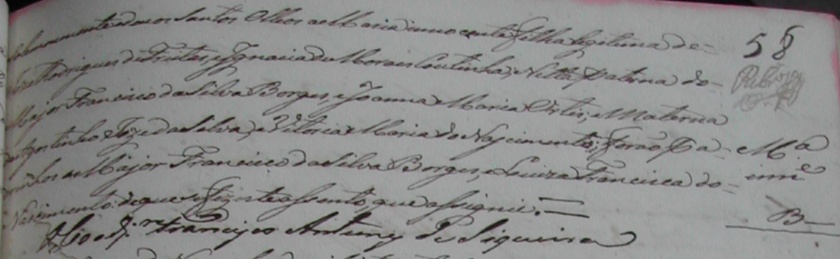 solemnemente e dei os Santos Oleos a Maria innocente filha legitima de
Rodrigues de Freitas, e Ignacia de Moraes Coutinha, Netta Paterna do
Major Francisco da Silva Borges, e Joanna Maria Ortiz, Materna
Agostinho Joze da Silva, e Vitoria Maria do Nascimento; forão Pa-
drinhos o Major Francisco da Silva Borges, e Luiza Francisca do
Nascimento de que fiz este assento que assignei.
Francisco Antunes de Siqueira
58
Mª
B